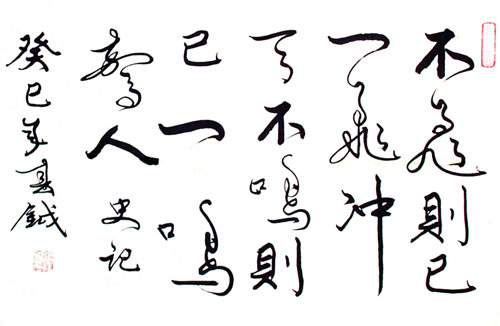 不飛則已
一飛冲
天不鳴則
已一鳴
驚人 史記
癸巳年夏